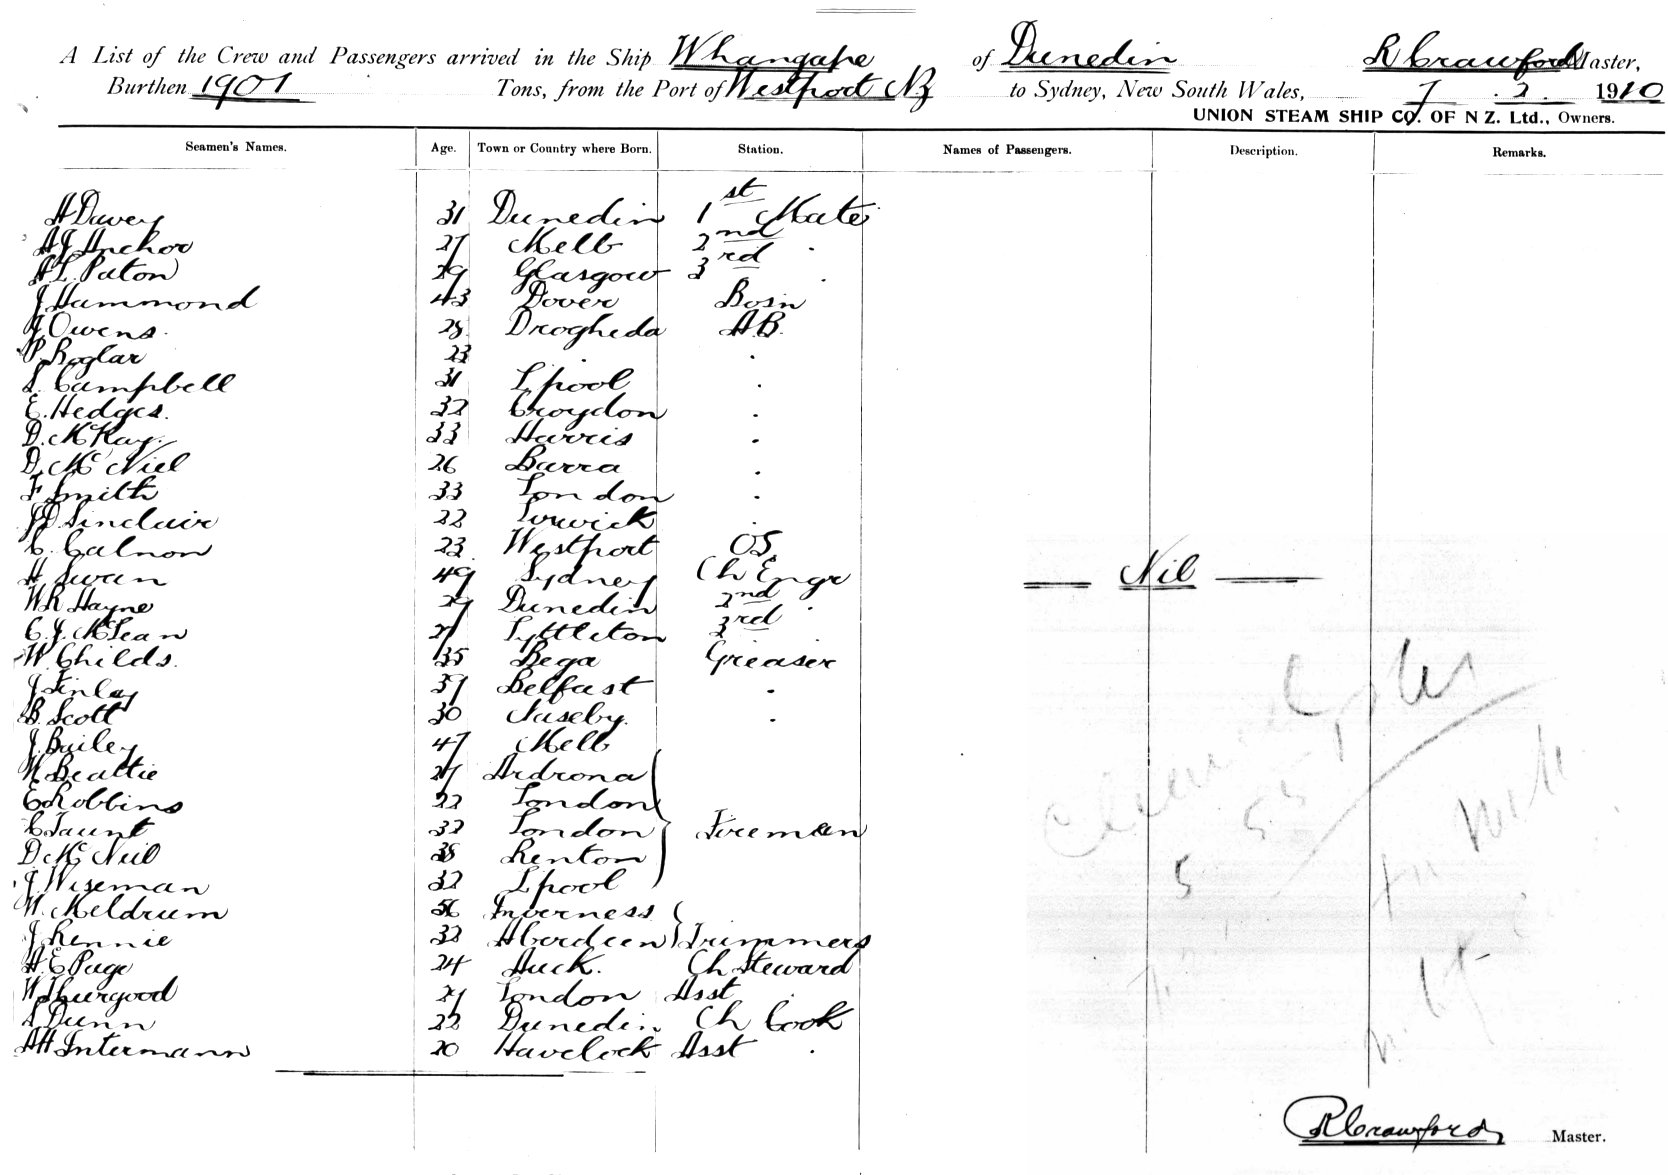 A List of the Crew and Passengers arrived in the Ship Whangape of Dunedin R Crawford Master,
Burthen 1901 Tons, from the Port of Westport NZ to Sydney, New South Wales, 7 . 2 . 1910
UNION STEAM SHIP CO. OF N Z. Ltd., Owners.
Seamen's Names. Age. Town or Country where Born. Station. Names of Passengers. Description. Remarks.
A Davey 31 Dunedin 1st Mate
A J Anchor 27 Melb 2nd "
A L Paton 29 Glasgow 3rd "
J Hammond 43 Dover Bosn
J Owens. 28 Drogheda A.B.
P. Roglar 23 " "
S. Campbell 31 L'pool "
E. Hedges. 32 Croydon "
D. McKay. 33 Harris "
D. Mc Niel 26 Barra "
F Smith 33 London "
J D Sinclair 22 Lerwick "
C. Calnon 23 Westport OS
H Swan 49 Sydney Ch Engr
W R Hayne 29 Dunedin 2nd "
C. J. McLean 27 Lyttleton 3rd
W. Childs. 35 Bega Greaser
J Finlay 39 Belfast "
B. Scott 30 Naseby. "
J. Bailey 47 Melb
W Beattie 27 Ardrona
E Robbins 22 London
C Taunt 32 London Firemen
D. Mc Neil 38 Renton
J Wiseman 32 L'pool
W. Meldrum 56 Inverness
J Rennie 32 Aberdeen Trimmers
H. E Page 24 Auck. Ch Steward
W Thurgood 29 London Asst "
S Dunn 32 Dunedin Ch Cook
A H Intermann 20 Havelock Asst "
Nil
R Crawford Master.